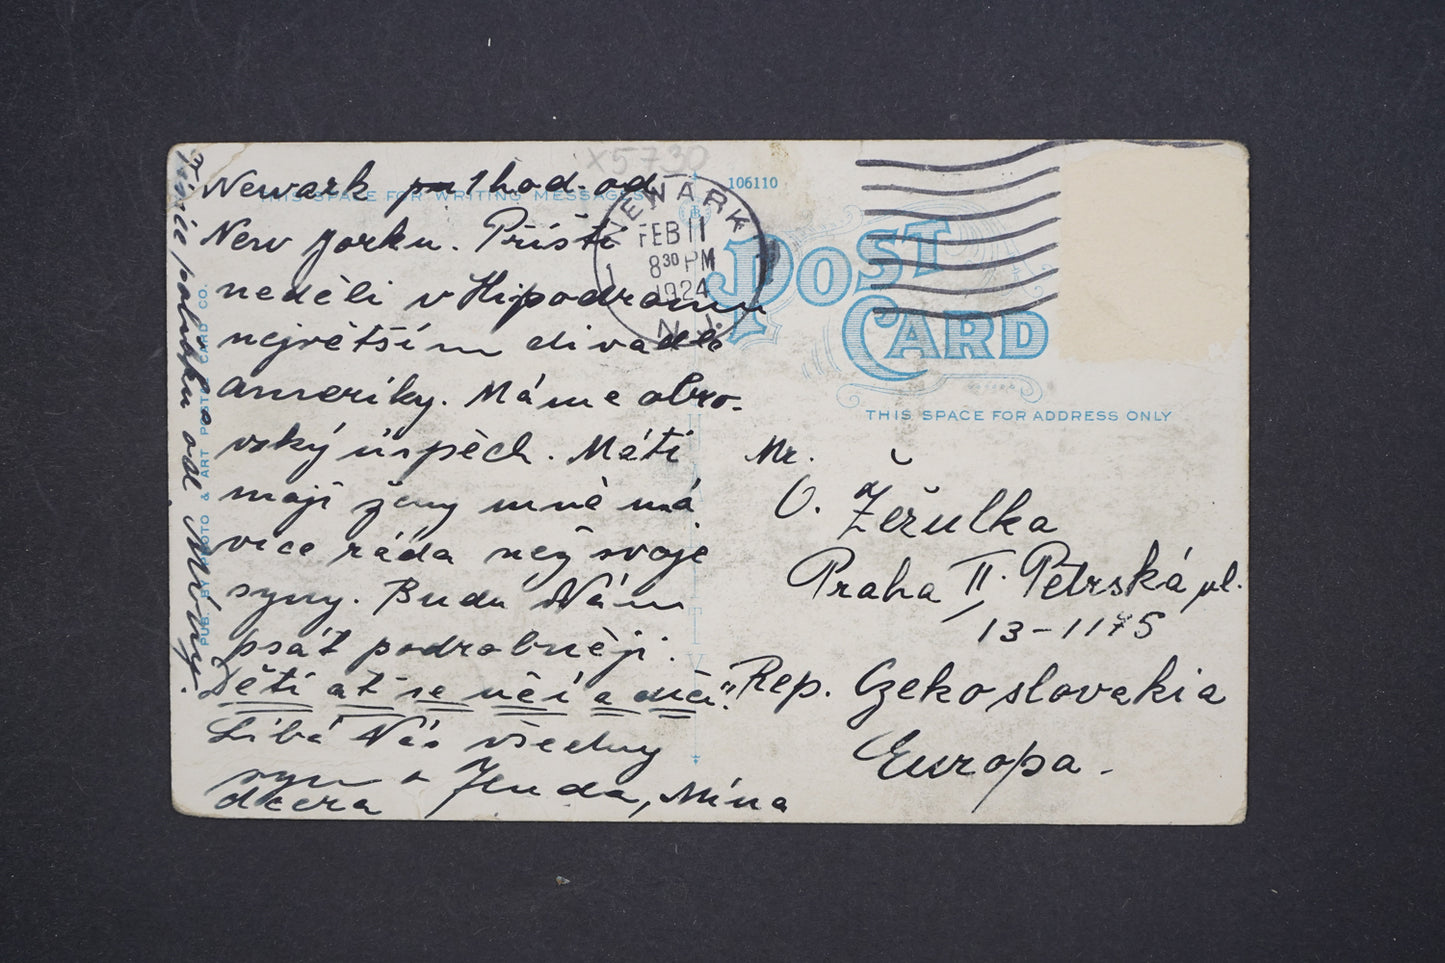 x5730
THIS SPACE FOR WRITING MESSAGES
106110
Newark 1 hod. od
New Yorku. Příští
neděli v Hipodromu
největším divadle
Ameriky. Máme obro-
vský úspěch. Máti
mojí ženy mně má
více ráda než svoje
syny. Budu Vám
psát podrobněji.
Děti ať se učí a
Líbá Vás všechny
syn a Jenda, Mína
dcera
Tisíce polibků od Míny.
PUB. BY PHOTO & ART POST CARD CO.
NEWARK
FEB 11
8 30 PM
1924
N.J.
POST
CARD
THIS SPACE FOR ADDRESS ONLY
Mr.
O. Žěrulka
Praha II. Petrská ul.
13-1175
Rep. Czekoslovakia
Europa.